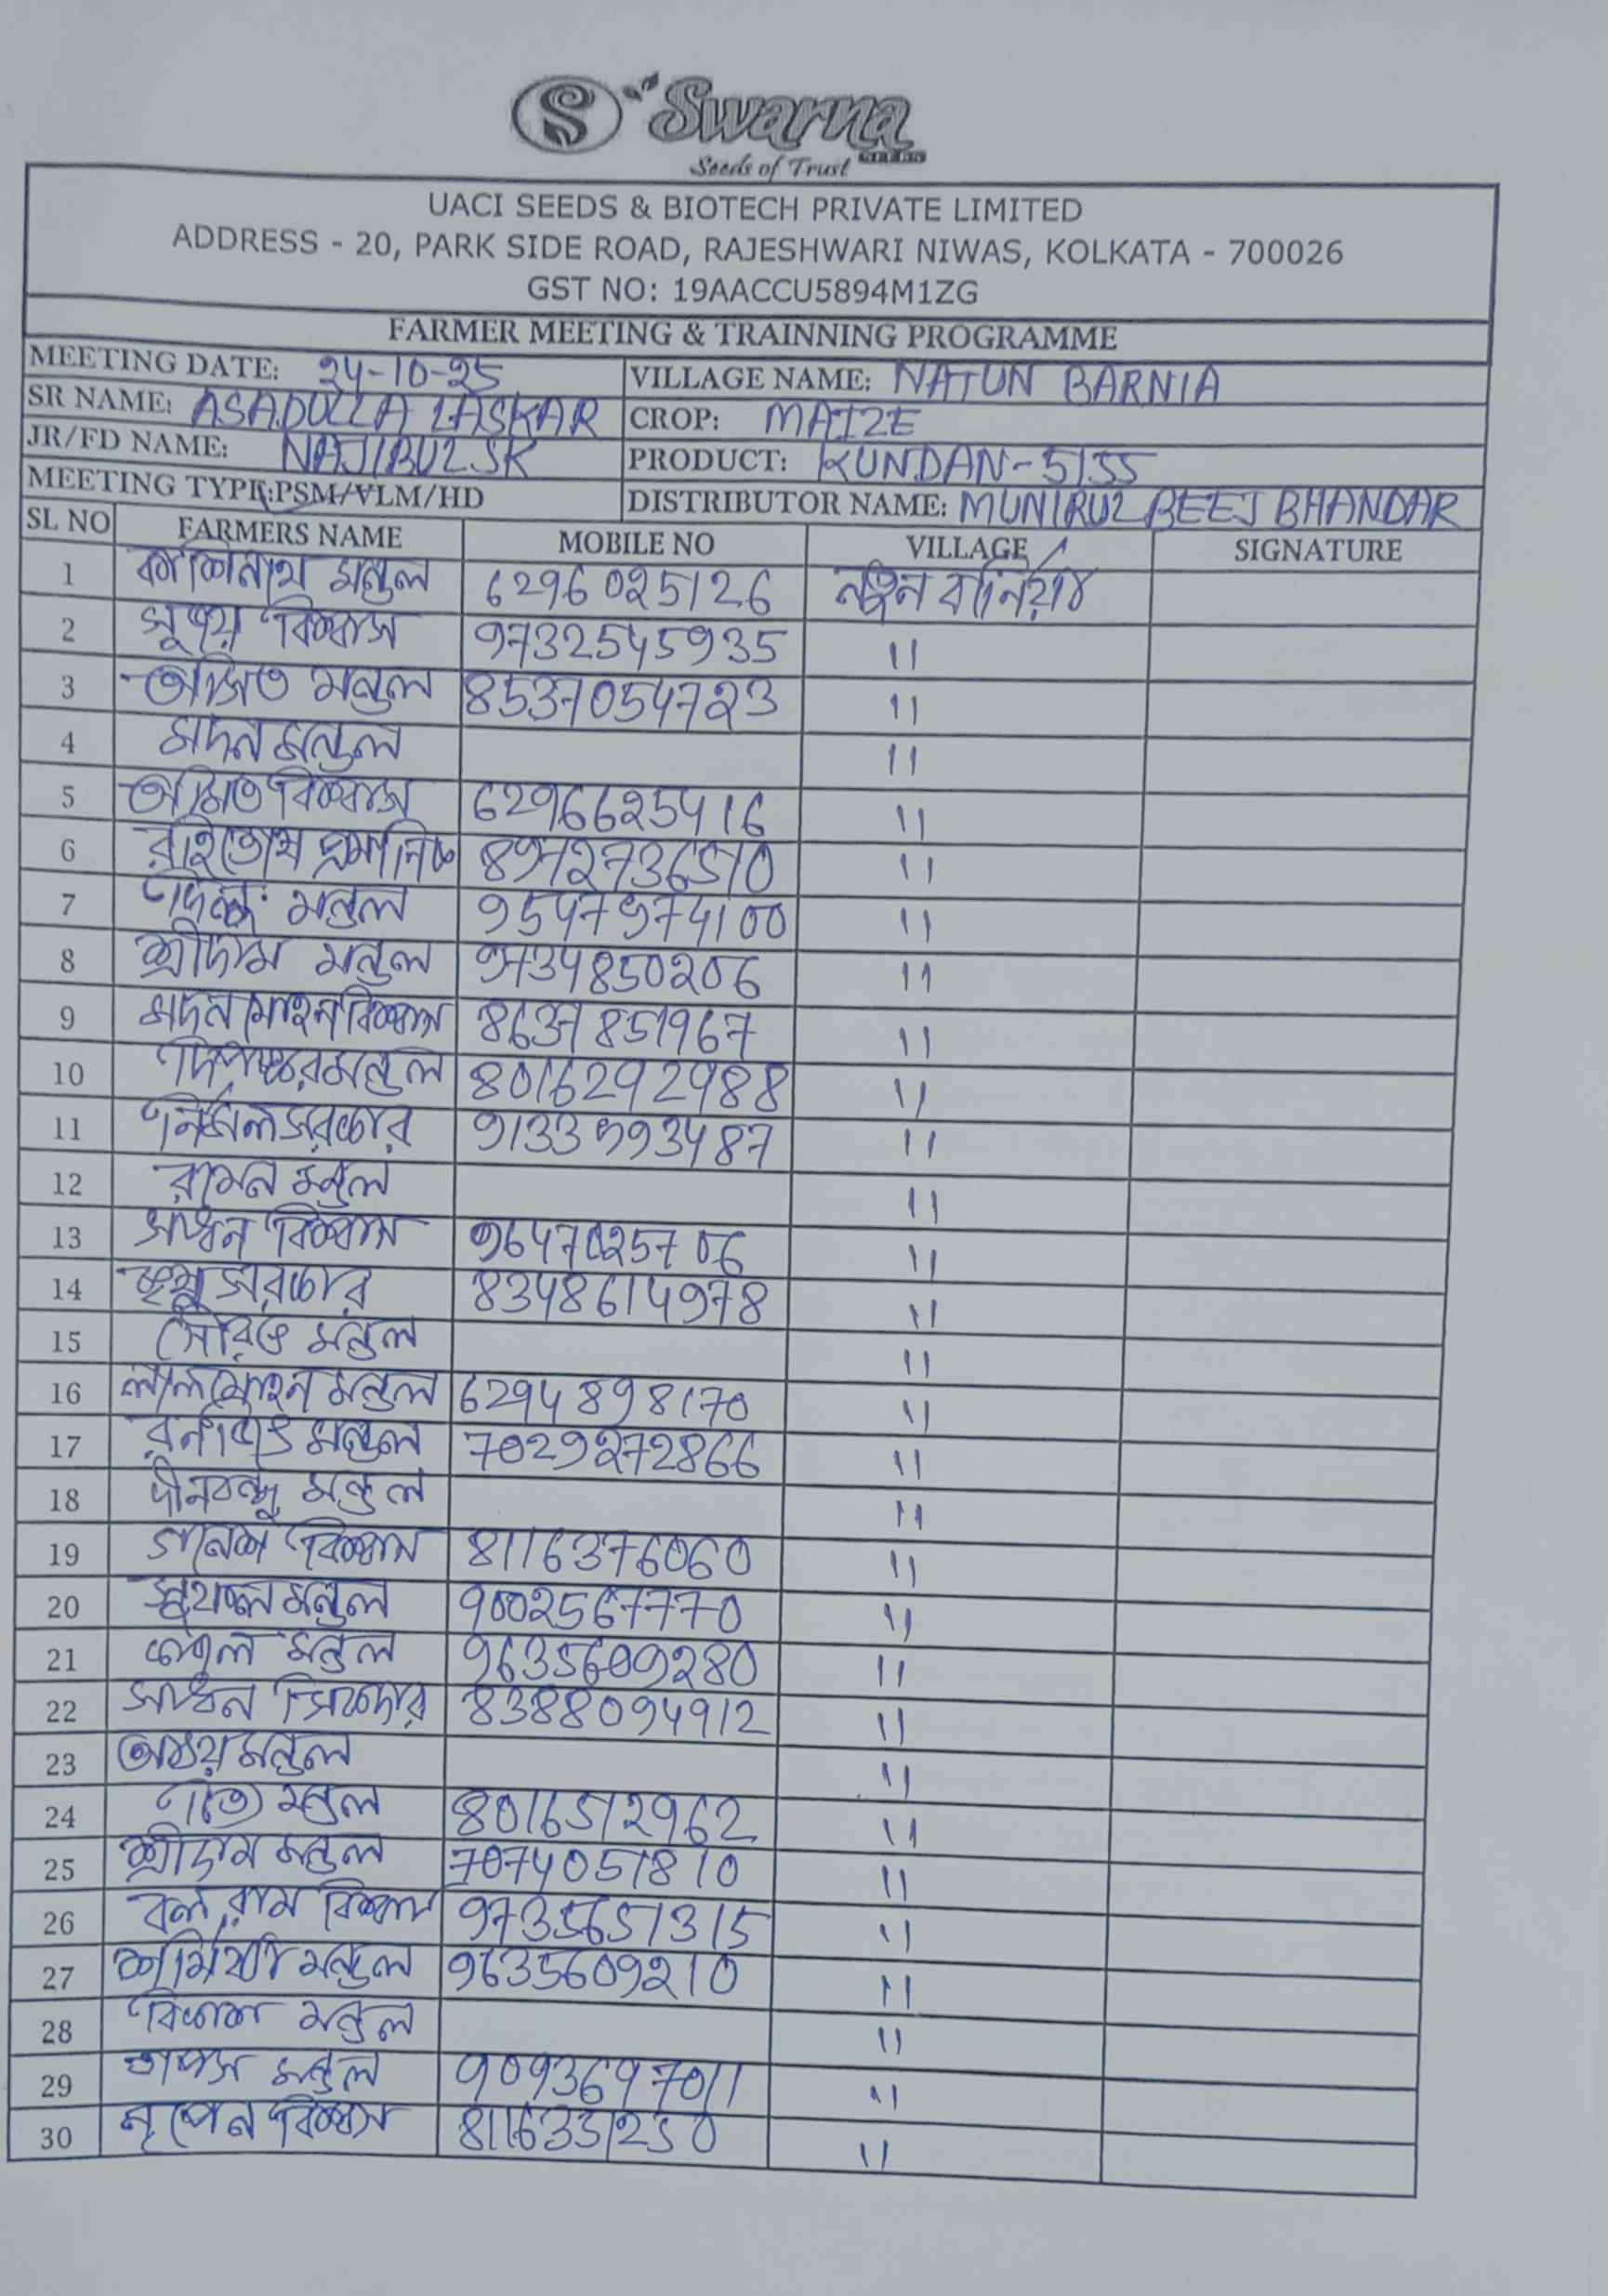 Swarna
Seeds of Trust
UACI SEEDS & BIOTECH PRIVATE LIMITED
ADDRESS - 20, PARK SIDE ROAD, RAJESHWARI NIWAS, KOLKATA - 700026
GST NO: 19AACCU5894M1ZG
FARMER MEETING & TRAINNING PROGRAMME
MEETING DATE: 24-10-25 VILLAGE NAME: NATUN BARNIA
SR NAME: ASADULLA LASKAR CROP: MAIZE
JR/FD NAME: NAJIBUL SK PRODUCT: KUNDAN-5155
MEETING TYPE:PSM/VLM/HD DISTRIBUTOR NAME: MUNIRUL BEEJ BHANDAR
SL NO FARMERS NAME MOBILE NO VILLAGE SIGNATURE
1 কাশিনাথ মন্ডল 6296025126 নতুন বার্নিয়া
2 বিশ্বাস 9732545935 "
3 অজিত মন্ডল 8537054723 "
4 মদন মন্ডল "
5 অমিত বিশ্বাস 6296625416 "
6 8972736510 "
7 মন্ডল "
8 শ্রীদাম মন্ডল 9734850206 "
9 মদন মোহন বিশ্বাস 8637851967 "
10 দিপঙ্কর মন্ডল 8016292988 "
11 নির্মল সরকার "
12 রমেন মন্ডল "
13 সাধন বিশ্বাস 9647025706 "
14 সরকার 8348614978 "
15 সৌরভ মন্ডল "
16 লালমোহন মন্ডল 6294898170 "
17 রনজিৎ মন্ডল 7029272866 "
18 দীনবন্ধু মন্ডল "
19 গনেশ বিশ্বাস 8116376060 "
20 মন্ডল 9002567770 "
21 মন্ডল 9635609280 "
22 সাধন সিকদার 8388094912 "
23 অভয় মন্ডল "
24 মন্ডল 8016512962 "
25 শ্রীদাম মন্ডল 7074051810 "
26 বলরাম বিশ্বাস 9735651315 "
27 মন্ডল 9635609210 "
28 বিকাশ মন্ডল "
29 তাপস মন্ডল 9093697011 "
30 নৃপেন বিশ্বাস 8116351250 "